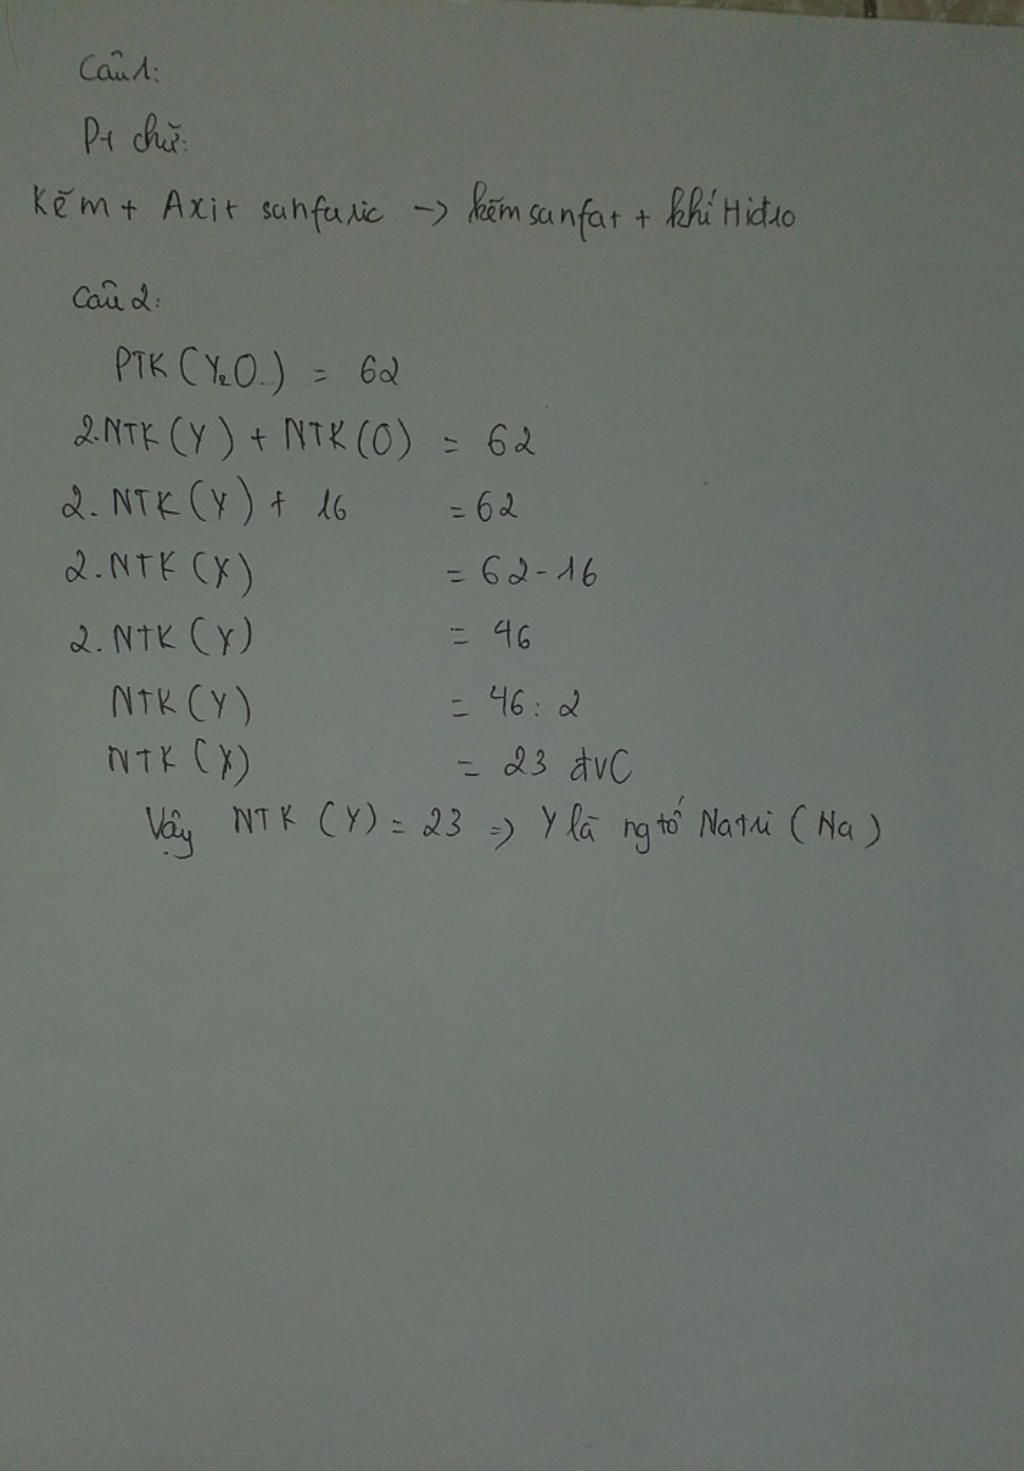 Câu 1:
Pt chữ:
Kẽm + Axit sanfuric -> kẽm sunfat + khí Hiđro
Câu 2:
PTK (Y₂O..) = 62
2.NTK (Y) + NTK (O) = 62
2. NTK (Y) + 16 = 62
2. NTK (Y) = 62 - 16
2. NTK (Y) = 46
NTK (Y) = 46 : 2
NTK (Y) = 23 đvC
Vậy NTK (Y) = 23 => Y là ng tố Natri (Na)